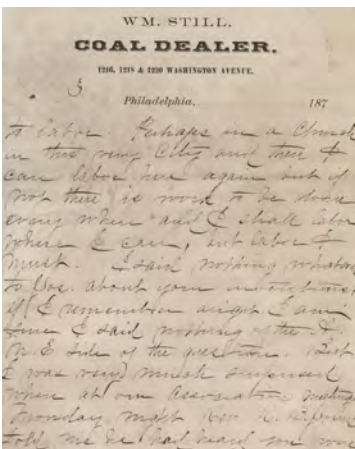 WM. STILL,
COAL DEALER,
1216, 1218 & 1220 WASHINGTON AVENUE.
3
Philadelphia, 187
to labor. Perhaps in a Church
in this very City and then I
can labor here again but if
not there is work to be done
every where and I shall labor
where I can, but labor I
must. I said nothing whatever
to Dos. about your
if I remember aright I am
sure I said nothing of the A.
M. E side of the question. But
I was very much surprised
when at our Association meeting
Monday night Rev.
told me he had heard you were